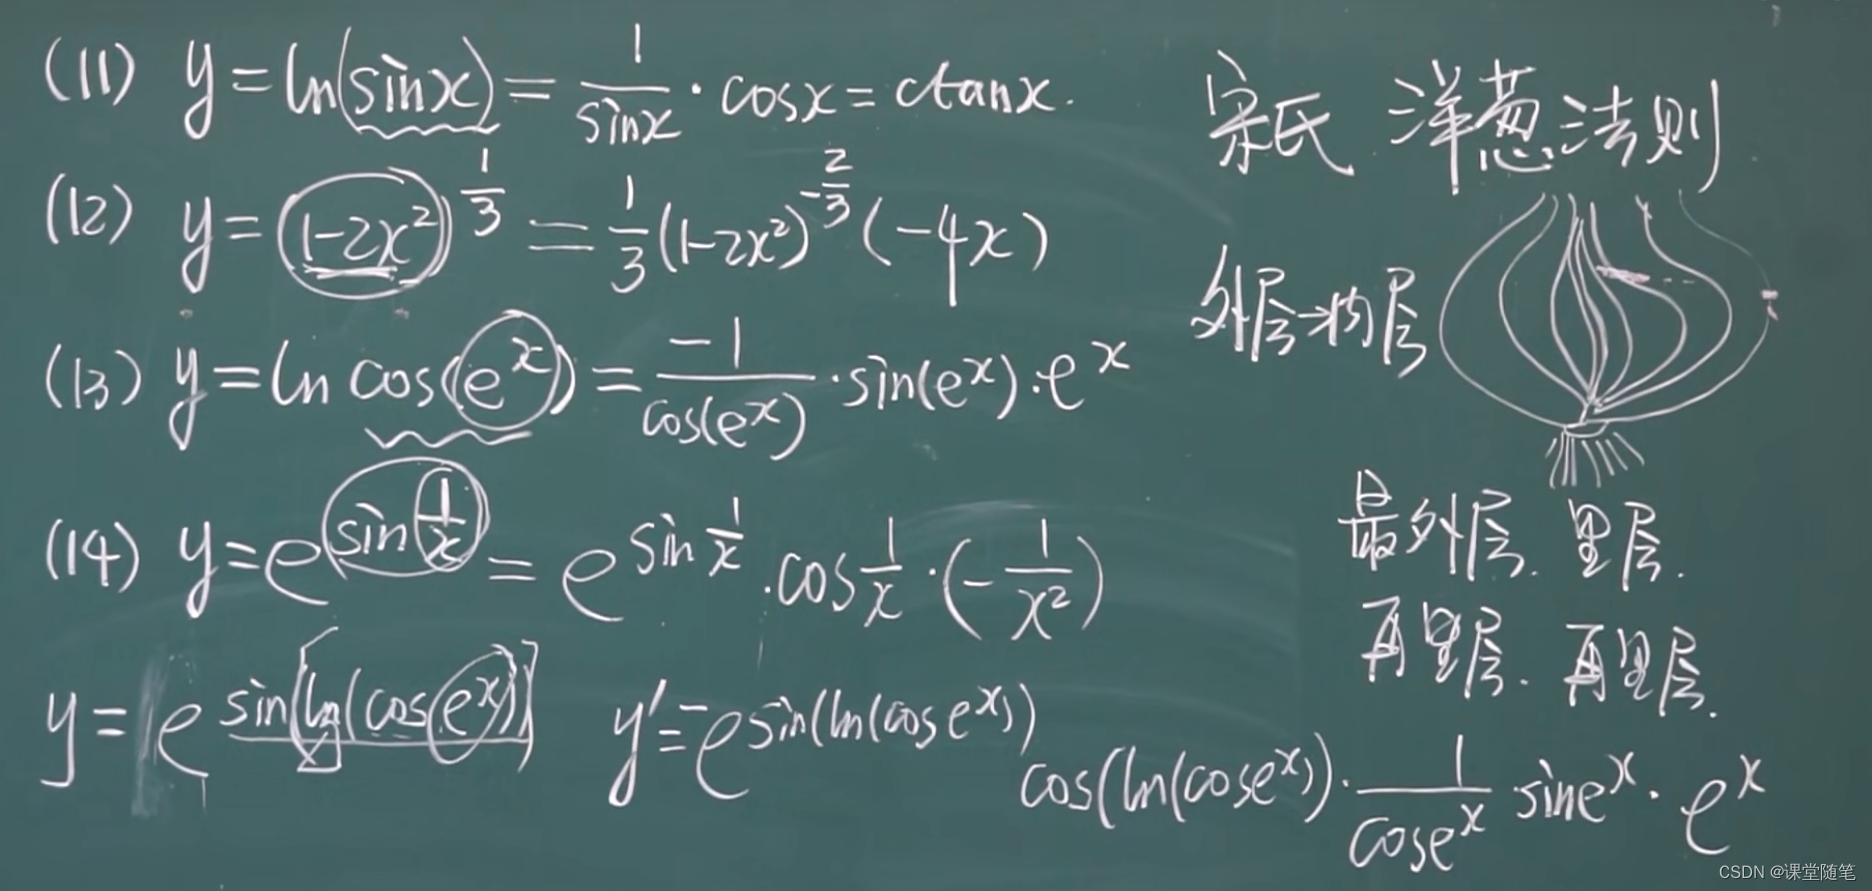 (11) y = ln(sinx) = 1/sinx · cosx = ctanx.
(12) y = (1-2x²)^(1/3) = 1/3 (1-2x²)^(-2/3) (-4x)
(13) y = ln cos(e^x) = -1/cos(e^x) · sin(e^x) · e^x
(14) y = e^(sin 1/x) = e^(sin 1/x) · cos 1/x · (- 1/x²)
y = e^(sin[ln(cos(e^x))]) y' = -e^(sin(ln(cos e^x))) cos(ln(cose^x)) · 1/cose^x · sine^x · e^x
宋氏 洋葱法则
外层→内层
最外层. 里层.
再里层. 再里层.
CSDN @课堂随笔